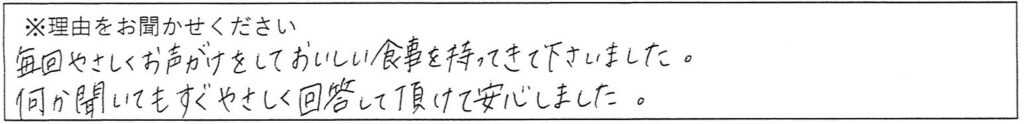 ※理由をお聞かせください
毎回やさしくお声がけをしておいしい食事を持ってきて下さいました。
何か聞いてもすぐやさしく回答して頂けて安心しました。